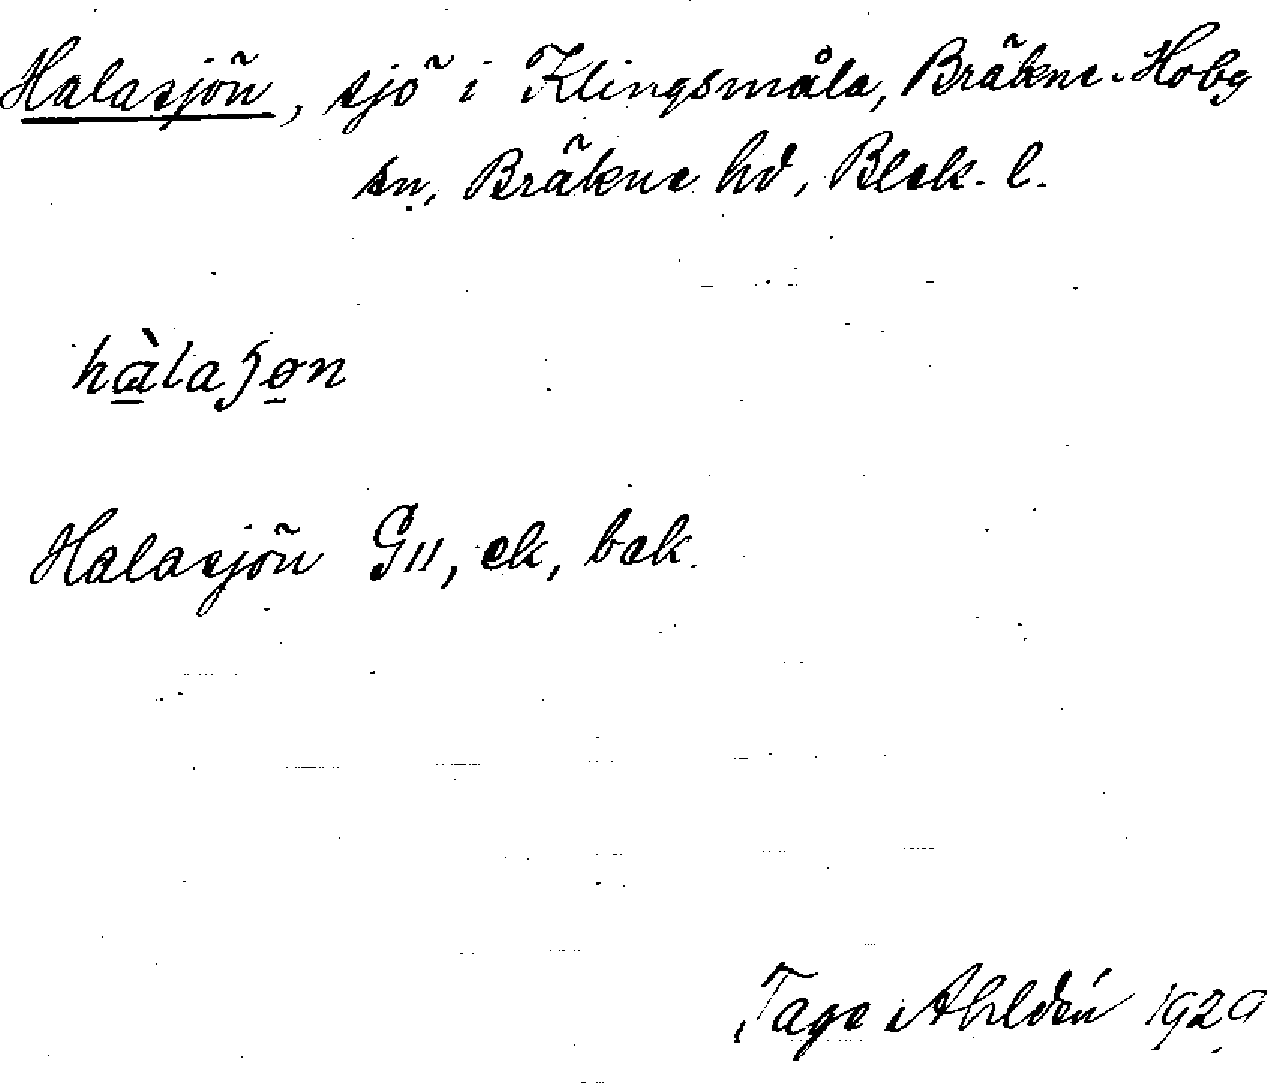 Halasjön, sjö i Klingsmåla, Bräkne-Hoby
sn, Bräkne hd, Blek. l.
hàlaʃøn
Halasjön G11, ek, bek.
Tage Ahldén 1929